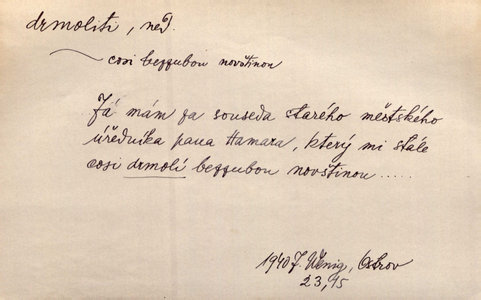 drmoliti, ned.
cosi bezzubou novštinou
Já mám za souseda starého městského
úředníka pana Hamara, který mi stále
cosi drmolí bezzubou novštinou .....
1940 J. Wenig, Ostrov
23, 95